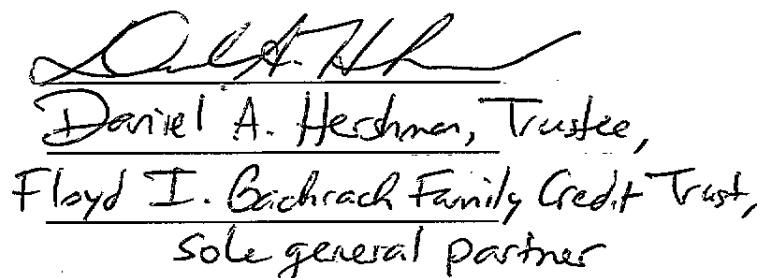 Daniel A. Hershman, Trustee,
Floyd I. Bachrach Family Credit Trust,
sole general partner